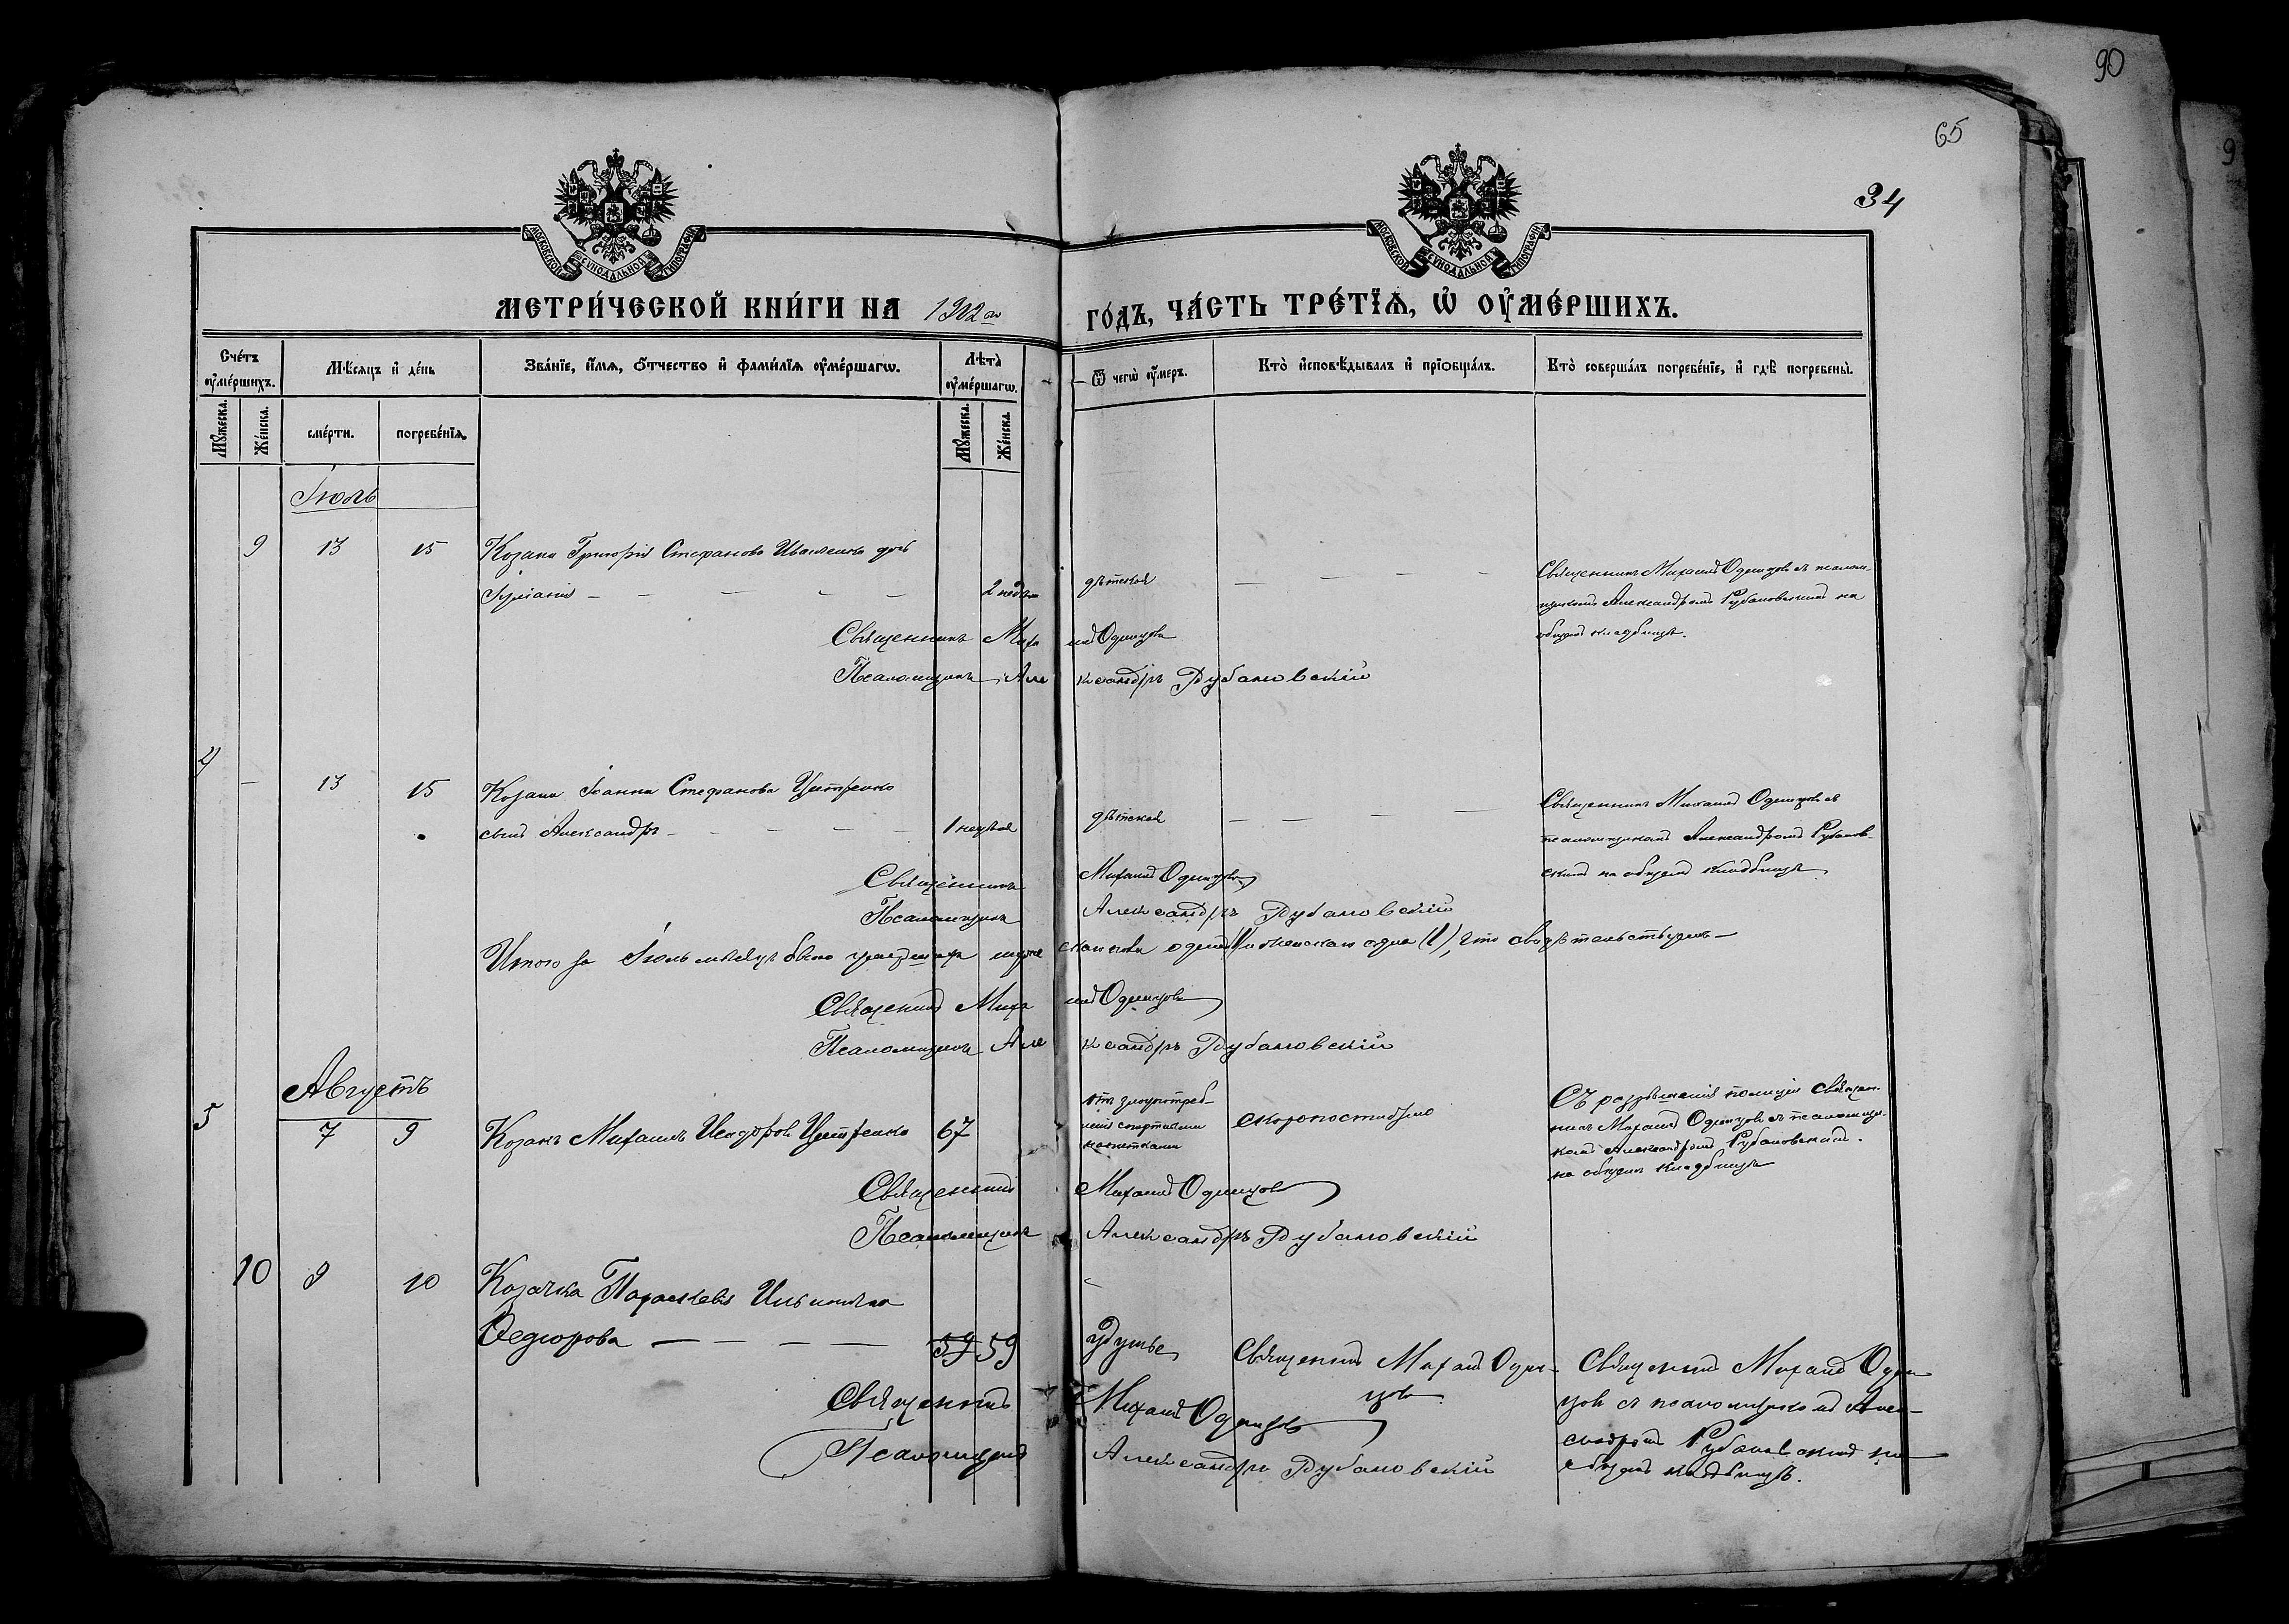 90
65
34
9
МОСКОВСКОЙ СѴНОДАЛЬНОЙ ТИПОГРАФІИ
МОСКОВСКОЙ СѴНОДАЛЬНОЙ ТИПОГРАФІИ
МЕТРИ́ЧЕСКОЙ КНИ́ГИ НА 1902 го ГО́ДЪ, ЧА́СТЬ ТРЕ́ТЇѦ, Ѡ҆ ОУ҆МЕ́РШИХЪ.
Сче́тъ оу҆ме́ршихъ.
Мѣ́сяцъ и҆ де́нь
Зва́нїе, и҆́мѧ, ѻ҆́тчество и҆ фами́лїѧ оу҆ме́ршагѡ.
Лѣта̀ оу҆ме́ршагѡ.
Ѿ чегѡ̀ оу҆́меръ.
Кто̀ и҆сповѣ́дывалъ и҆ прїѻбща́лъ.
Кто̀ соверша́лъ погребе́нїе, и҆ гдѣ̀ погребены̀.
Мꙋ́жеска.
Же́нска.
сме́рти.
погребе́нїѧ.
Мꙋ́жеска.
Же́нска.
Іюль
9 13 15 Козака Григорія Стефанова дочь
Іуліанія 2 недѣли дѣтской Священникъ Михаилъ Одинцовъ съ псалом-
щикомъ Александромъ Рубановскимъ на
общемъ кладбищѣ.
Священникъ Михаилъ Одинцовъ
Псаломщикъ Александръ Рубановскій
4 — 13 15 Козака Іоанна Стефанова
сынъ Александръ 1 недѣля дѣтской Священникъ Михаилъ Одинцовъ съ
псаломщикомъ Александромъ Рубанов-
скимъ на общемъ кладбищѣ
Священникъ Михаилъ Одинцовъ
Псаломщикъ Александръ Рубановскій
Итого за Іюль мѣсяцъ было умершихъ мужескаго пола одинъ (1) и женскаго одна (1), что свидѣтельствуемъ —
Священникъ Михаилъ Одинцовъ
Псаломщикъ Александръ Рубановскій
Августъ
5 7 9 Козакъ Михаилъ Исидоровъ 67
отъ злоупотреб-
ленія спиртными
напитками
скоропостижно
Съ разрѣшенія полиціи священ-
никъ Михаилъ Одинцовъ съ псаломщи-
комъ Александромъ Рубановскимъ
на общемъ кладбищѣ
Священникъ Михаилъ Одинцовъ
Псаломщикъ Александръ Рубановскій
10 9 10 Козачка Параскевія
Федорова 59 59 удушье
Священникъ Михаилъ Один-
цовъ
Священникъ Михаилъ Один
цовъ съ псаломщикомъ Алек-
сандромъ Рубановскимъ на
общемъ кладбищѣ.
Священникъ Михаилъ Одинцовъ
Псаломщикъ Александръ Рубановскій